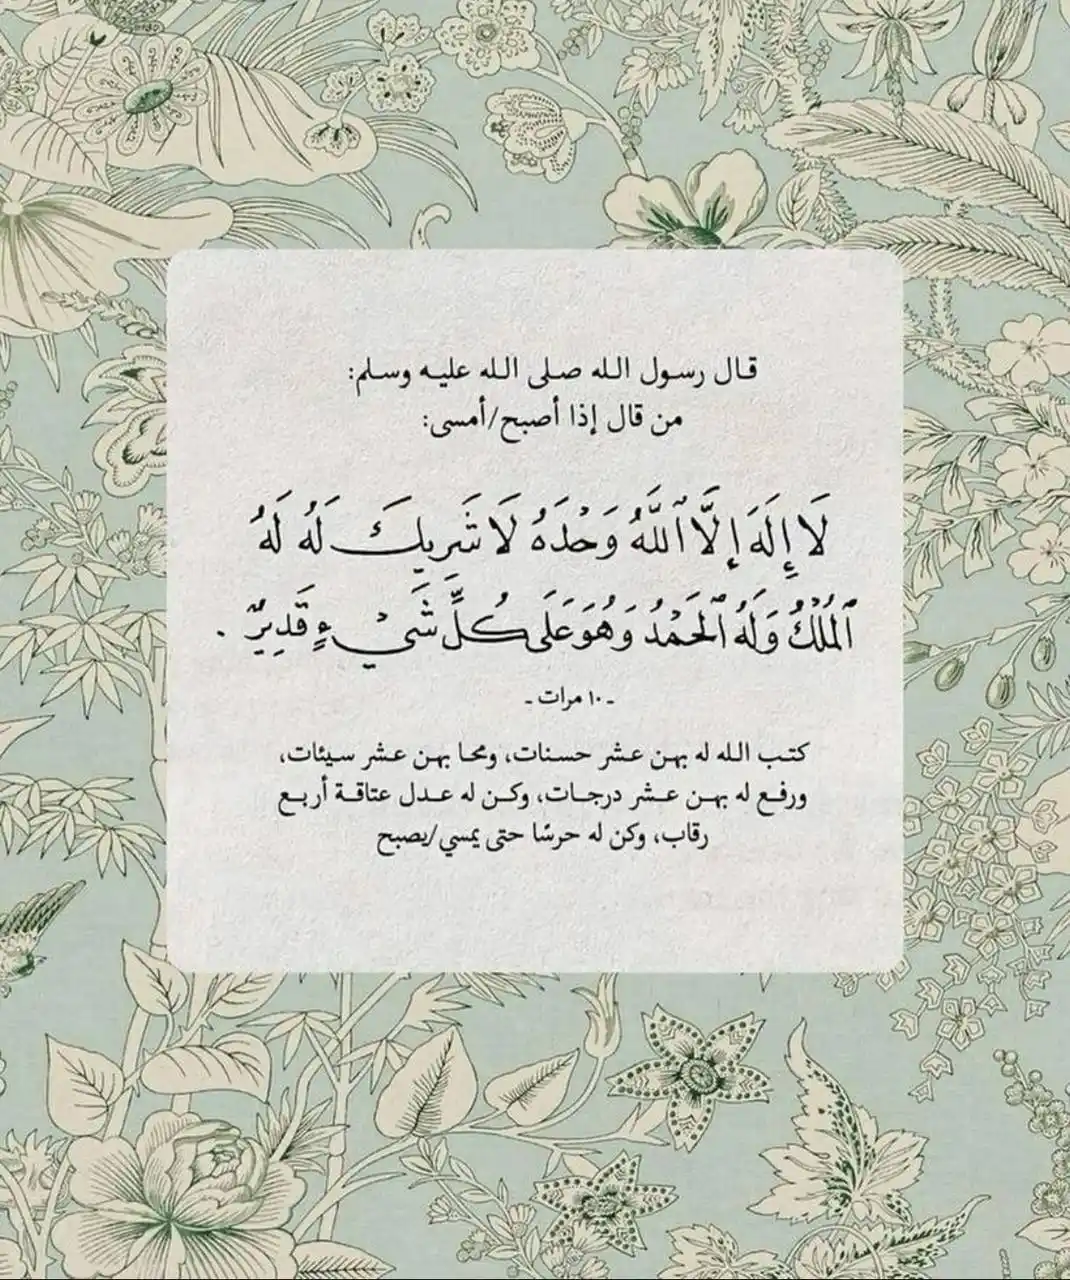 قال رسول الله صلى الله عليه وسلم:
من قال إذا أصبح/أمسى:
لَا إِلَهَ إِلَّا ٱللَّهُ وَحْدَهُ لَا شَرِيكَ لَهُ لَهُ
ٱلْمُلْكُ وَلَهُ ٱلْحَمْدُ وَهُوَ عَلَى كُلِّ شَيْءٍ قَدِيرٌ .
- ١٠ مرات -
كتب الله له بهن عشر حسنات، ومحا بهن عشر سيئات،
ورفع له بهن عشر درجات، وكن له عدل عتاقة أربع
رقاب، وكن له حرسًا حتى يمسي/يصبح